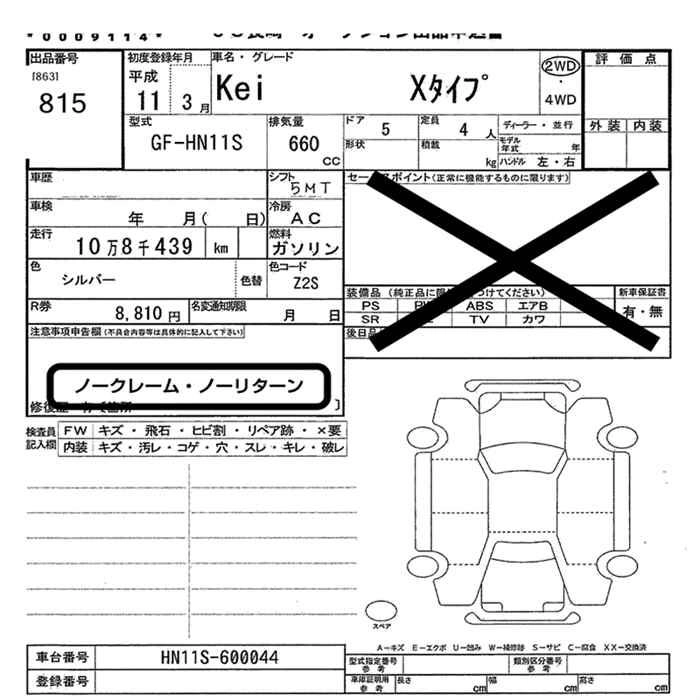 *0009114*
出品番号
[863]
815
初度登録年月
平成
11 3月
車名・グレード
Kei Xタイプ
2WD
・
4WD
評価点
外装 内装
型式
GF-HN11S
排気量
660
CC
ドア
5
定員
4 人
ディーラー・並行
形状
積載
kg
モデル年式 年
ハンドル 左・右
車歴
シフト
5MT
車検
年 月( 日)
冷房
AC
走行
10万8千439 km
燃料
ガソリン
色
シルバー
色替
色コード
Z2S
R券
8,810円
名変通知期限
月 日
セー スポイント(正常に機能するものに限ります)
装備品(純正品に限 つけてください)
新車保証書
PS ABS エアB
有・無
SR TV カワ
後日品
注意事項申告欄(不具合内容等は具体的に記入して下さい)
ノークレーム・ノーリターン
検査員
記入欄
FW キズ・飛石・ヒビ割・リペア跡・×要
内装 キズ・汚レ・コゲ・穴・スレ・キレ・破レ
スペア
A-キズ E-エクボ U-凹み W-補修跡 S-サビ C-腐食 XX-交換済
車台番号 HN11S-600044
型式指定番号
参考
類別区分番号
参考
登録番号
車庫証明用
参考
長さ cm
幅 cm
高さ cm